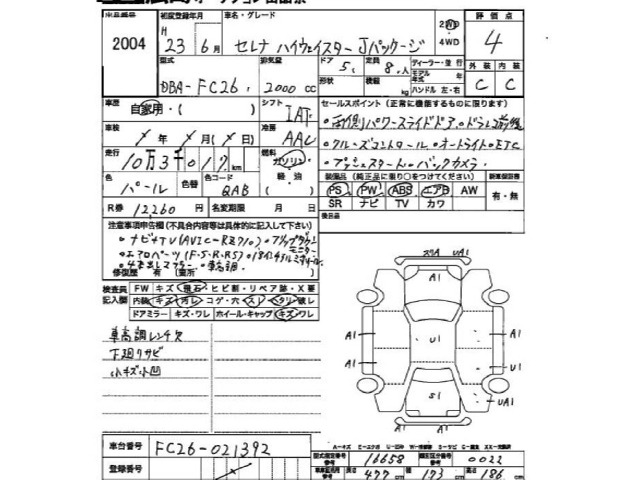 出品番号
2004
初度登録年月
H 23年 6月
車名・グレード
セレナ ハイウェイスター Jパッケージ
2WD
4WD
評価点
4
型式
DBA-FC26
排気量
2000 CC
ドア 5
定員 8人
形状
積載 kg
ディーラー・並行
モデル年式 年
ハンドル 左・右
外装 内装
C C
車歴
自家用・( )
シフト
IAT
車検
年 月( 日)
冷房
AAC
走行
10万3千017km
燃料
ガソリン
軽・油
色
パール
色替
QAB
R券 12,260 円
名変期限 月 日
セールスポイント(正常に機能するものに限ります)
・両側パワースライドドア・ドラレコ前後
・クルーズコントロール・オートライト・ETC
・プッシュスタート・バックカメラ
装備品(純正品に乗り○をつけてください)
PS PW ABS エアB AW
SR ナビ TV カワ
新車保証書
有・無
後日品
注意事項申告欄(不具合内容等は具体的に記入して下さい)
・ナビ+TV(AVIC-RZ710)・フリップダウンモニター
・エアロパーツ(F・S・R・RS)
・車高調
修復歴 有 (箇所 )
検査員記入欄
FW キズ 飛石 ヒビ割・リペア跡・X要
内装 キズ 汚レ コゲ・穴 スレ タリ・破レ
ドアミラー キズ・ワレ ホイール・キャップ キズ・ワレ
車高調レンチ欠
下廻りサビ
小キズ小凹
スリA UA1
A1 A1
A1 U1 A1
A1 S1 UA1
A1
車台番号
FC26-021392
登録番号
型式指定番号
16658
類別区分番号
0022
長さ 477 cm
幅 173 cm
高さ 186 cm